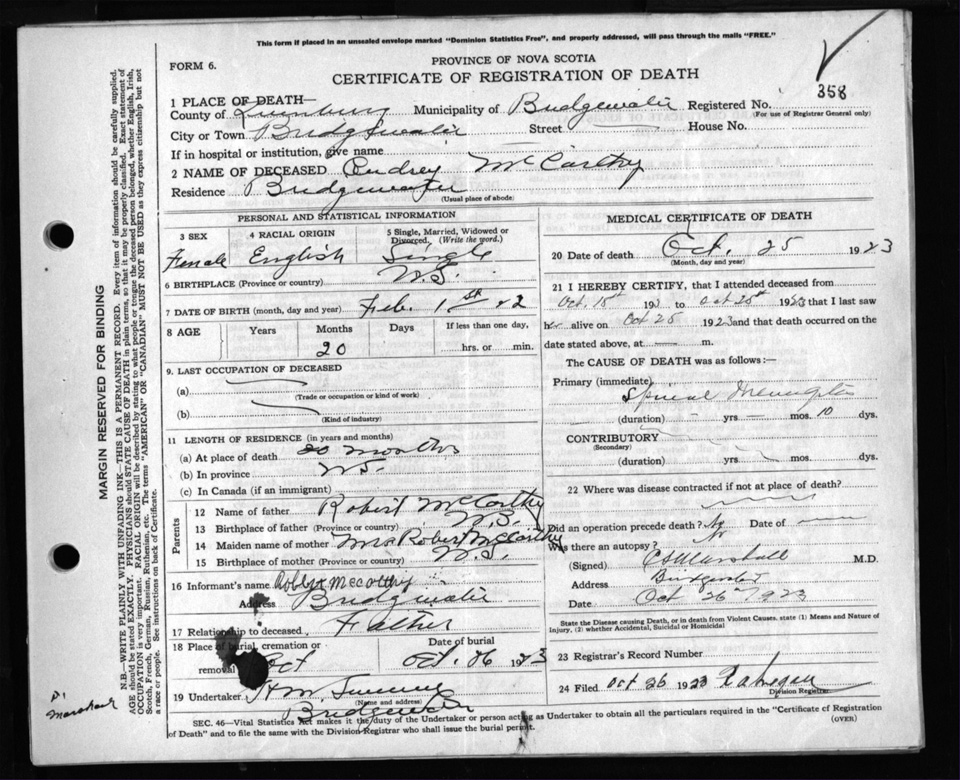 This form if placed in an unsealed envelope marked "Dominion Statistics Free", and properly addressed, will pass through the mails "FREE."
FORM 6.
PROVINCE OF NOVA SCOTIA
CERTIFICATE OF REGISTRATION OF DEATH
358
1 PLACE OF DEATH—
County of Lunenburg Municipality of Bridgewater Registered No.
(For use of Registrar General only)
City or Town Bridgewater Street House No.
If in hospital or institution, give name
2 NAME OF DECEASED Audrey McCarthy
Residence Bridgewater
(Usual place of abode)
PERSONAL AND STATISTICAL INFORMATION
3 SEX 4 RACIAL ORIGIN 5 Single, Married, Widowed or Divorced. (Write the word.)
Female English Single
6 BIRTHPLACE (Province or country) N.S.
7 DATE OF BIRTH (month, day and year) Feb. 1st 22
8 AGE Years Months Days If less than one day,
20 hrs. or min.
9. LAST OCCUPATION OF DECEASED
(a)
(Trade or occupation or kind of work)
(b)
(Kind of industry)
11 LENGTH OF RESIDENCE (in years and months)
(a) At place of death 20 months
(b) In province N.S.
(c) In Canada (if an immigrant)
Parents
12 Name of father Robert McCarthy
13 Birthplace of father (Province or country) N.S.
14 Maiden name of mother Mrs Robert McCarthy
15 Birthplace of mother (Province or country) N.S.
16 Informant's name Robert Mccarthy
Address Bridgewater
17 Relationship to deceased Father
18 Place of burial, cremation or removal Date of burial
Oct Oct. 26 1923
19 Undertaker H M
(Name and address)
Bridgewater
MEDICAL CERTIFICATE OF DEATH
20 Date of death Oct. 25 1923
(Month, day and year)
21 I HEREBY CERTIFY, that I attended deceased from
Oct. 15th 192 to Oct 25th 1923 that I last saw
her alive on Oct 25 1923 and that death occurred on the
date stated above, at — m.
The CAUSE OF DEATH was as follows:—
Primary (immediate)
Spinal Meningitis
(duration) — yrs — mos. 10 dys.
CONTRIBUTORY
(Secondary)
(duration) yrs mos. dys.
22 Where was disease contracted if not at place of death?
Did an operation precede death? No Date of
Was there an autopsy? No
(Signed) Marshall M.D.
Address Bridgewater
Date Oct 26th 1923
State the Disease causing Death, or in death from Violent Causes, state (1) Means and Nature of Injury, (2) whether Accidental, Suicidal or Homicidal
23 Registrar's Record Number
24 Filed Oct 26 1923
Division Registrar
SEC. 46—Vital Statistics Act makes it the duty of the Undertaker or person acting as Undertaker to obtain all the particulars required in the "Certificate of Registration
of Death" and to file the same with the Division Registrar who shall issue the burial permit.
(OVER)
MARGIN RESERVED FOR BINDING
N.B.—WRITE PLAINLY WITH UNFADING INK—THIS IS A PERMANENT RECORD. Every item of information should be carefully supplied.
AGE should be stated EXACTLY. PHYSICIANS should STATE CAUSE OF DEATH in plain terms, so that it may be properly classified. Exact statement of
OCCUPATION is very important. RACIAL ORIGIN will be described by stating to what people or tongue the deceased person belonged, whether English, Irish,
Scotch, French, German, Russian, Ruthenian, etc. The terms "AMERICAN" OR "CANADIAN" MUST NOT BE USED as they express citizenship but not
a race or people. See instructions on back of Certificate.
Dr
Marshall